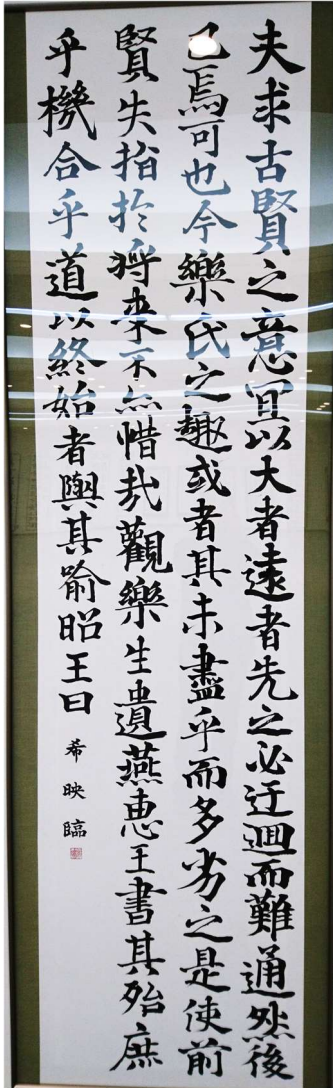 夫求古賢之意宜以大者遠者先之必迂迴而難通然後
已焉可也今樂氏之趣或者其未盡乎而多劣之是使前
賢失指於將來不亦惜哉觀樂生遺燕惠王書其殆庶
乎機合乎道以終始者與其喻昭王曰
希映臨